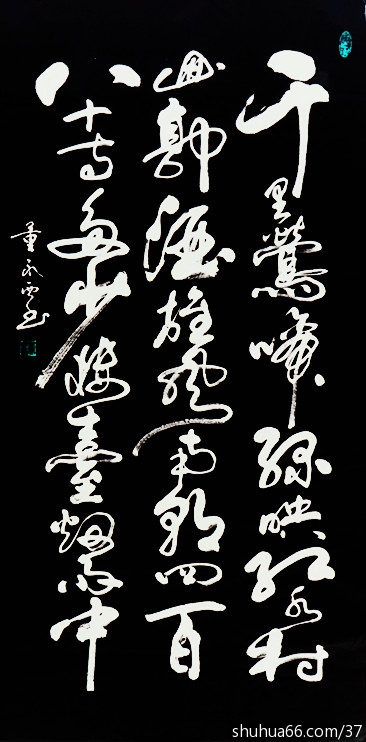 千里鶯啼綠映紅水村
山郭酒旗風南朝四百
八十寺多少樓臺煙雨中
shuhua66.com/37